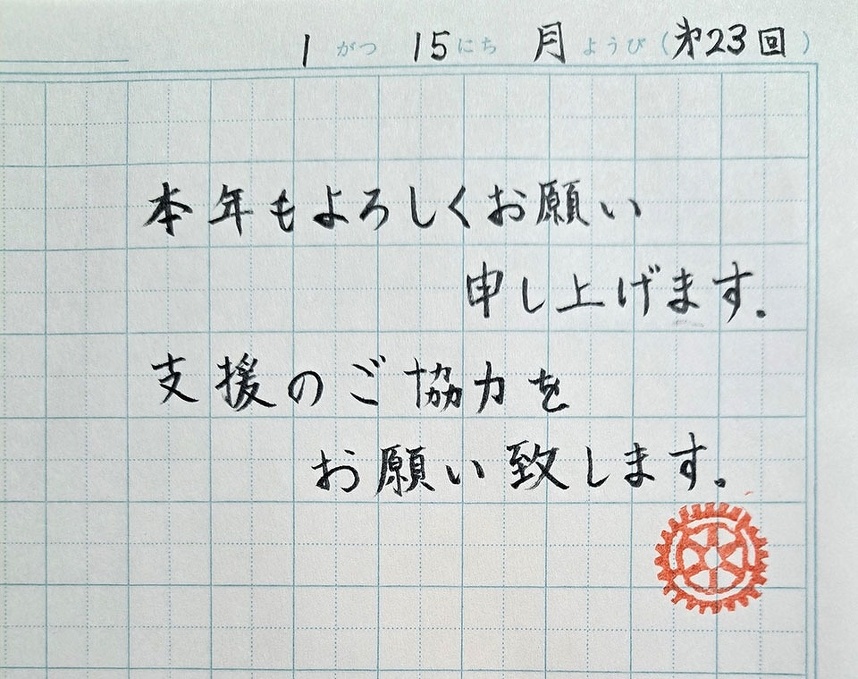 1 がつ 15 にち 月 ようび (第23回)
本年もよろしくお願い
申し上げます.
支援のご協力を
お願い致します。